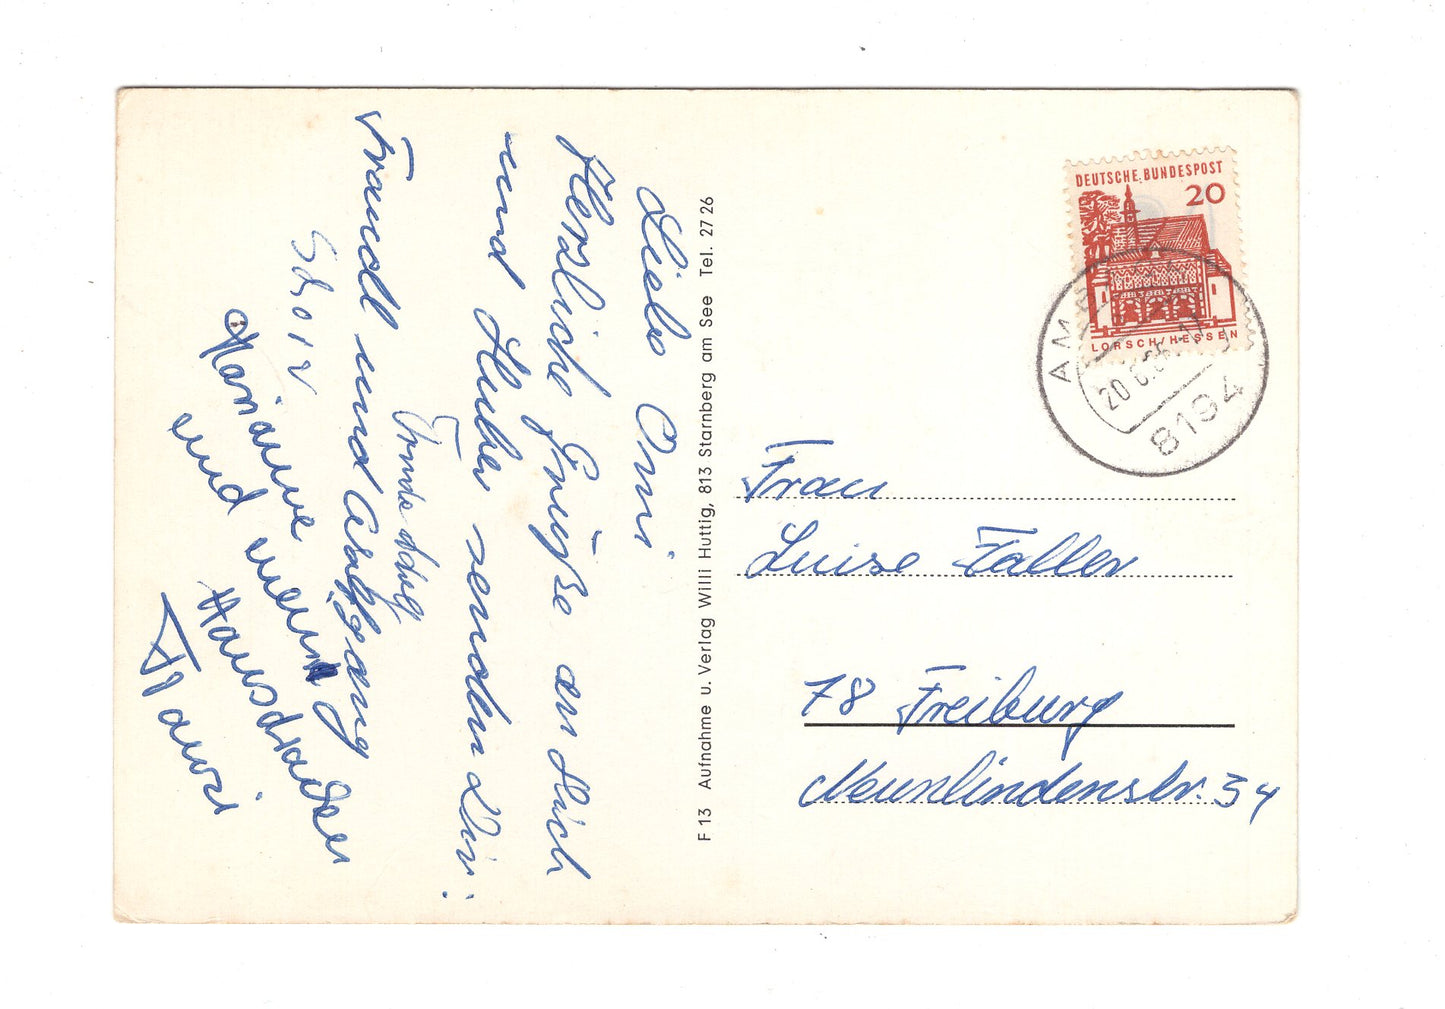 Liebe Omi
Herzliche Grüße an Dich
und Huber senden Dir:
Trudchen
Traudl und Wolfgang
Schorz
Marianne
und meine
Hausdrache
Franzi
F 13 Aufnahme u. Verlag Willi Huttig, 813 Starnberg am See Tel. 27 26
DEUTSCHE BUNDESPOST
20
LORSCH/HESSEN
8194
Frau
Luise Faller
78 Freiburg
Neunlindenstr. 34